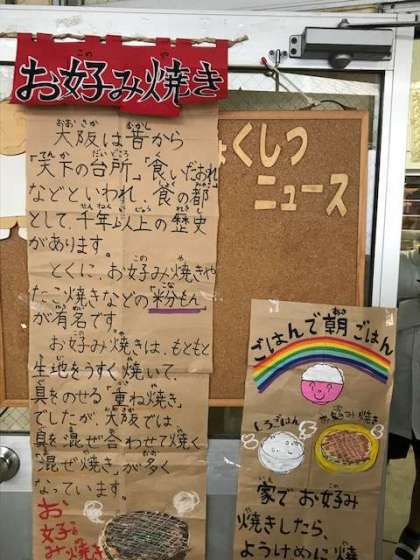 お好み焼き
大阪は昔から
「天下の台所」「食いだおれ」
などといわれ、食の都
として、千年以上の歴史
があります。
とくに、お好み焼きや
たこ焼きなどの「粉もん」
が有名です
お好み焼きは、もともと
生地をうすく焼いて、
具をのせる「重ね焼き」
でしたが、大阪では
具を混ぜ合わせて焼く
「混ぜ焼き」が多く
なっています。
お
好み
焼き
くしつ
ニュース
ごはんで朝ごはん
しろごはん
お好み焼き
家でお好み
焼きしたら、
ようけめに焼